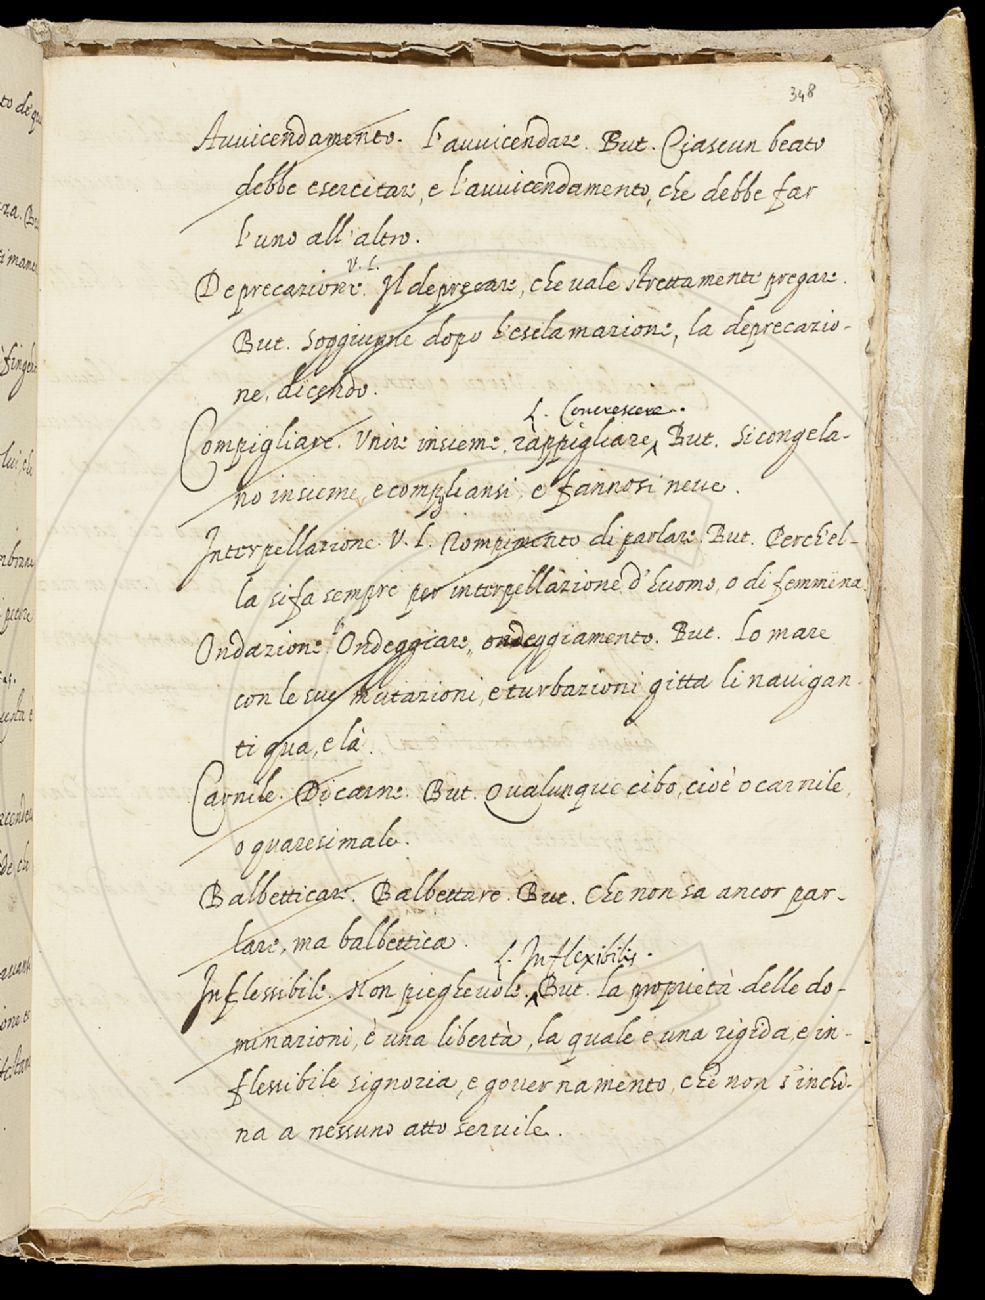 348
Auuicendamento. l'auuicendare. But. Ciascun beato
debbe esercitare, e l'auuicendamento, che debbe far
l'uno all'altro.
V. L.
Deprecazione. Il deprecare, che uale strettamente pregare.
But. Soggiunne dopo l'esclamazione, la deprecazio-
ne, dicendo.
L. Concrescere.
Compigliare. Vnire insieme, rappigliare, But. Sicongela-
no insieme, e compliansi, e fannosi neue.
Interpellazione. V. L. Rompimento di parlare. But. Perchel-
la sifa sempre per interpellazione d'huomo, o di femmina.
Ondazione. Ondeggiare, ondeggiamento. But. Lo mare
con le sue mutazioni, e turbazioni gitta li nauigan-
ti qua, e là.
Carnile. Di carne. But. Qualunque cibo, cioè o carnile,
o quaresimale.
Balbetticare. Balbettare. But. Che non sa ancor par-
lare, ma balbettica.
L. Inflexibilis.
Inflessibile. Non pieghevole. But. La proprietà delle do-
minazioni, è una libertà, la quale e una rigida, e in-
flessibile signoria, e gouernamento, che non s'inchi-
na a nessuno atto seruile.